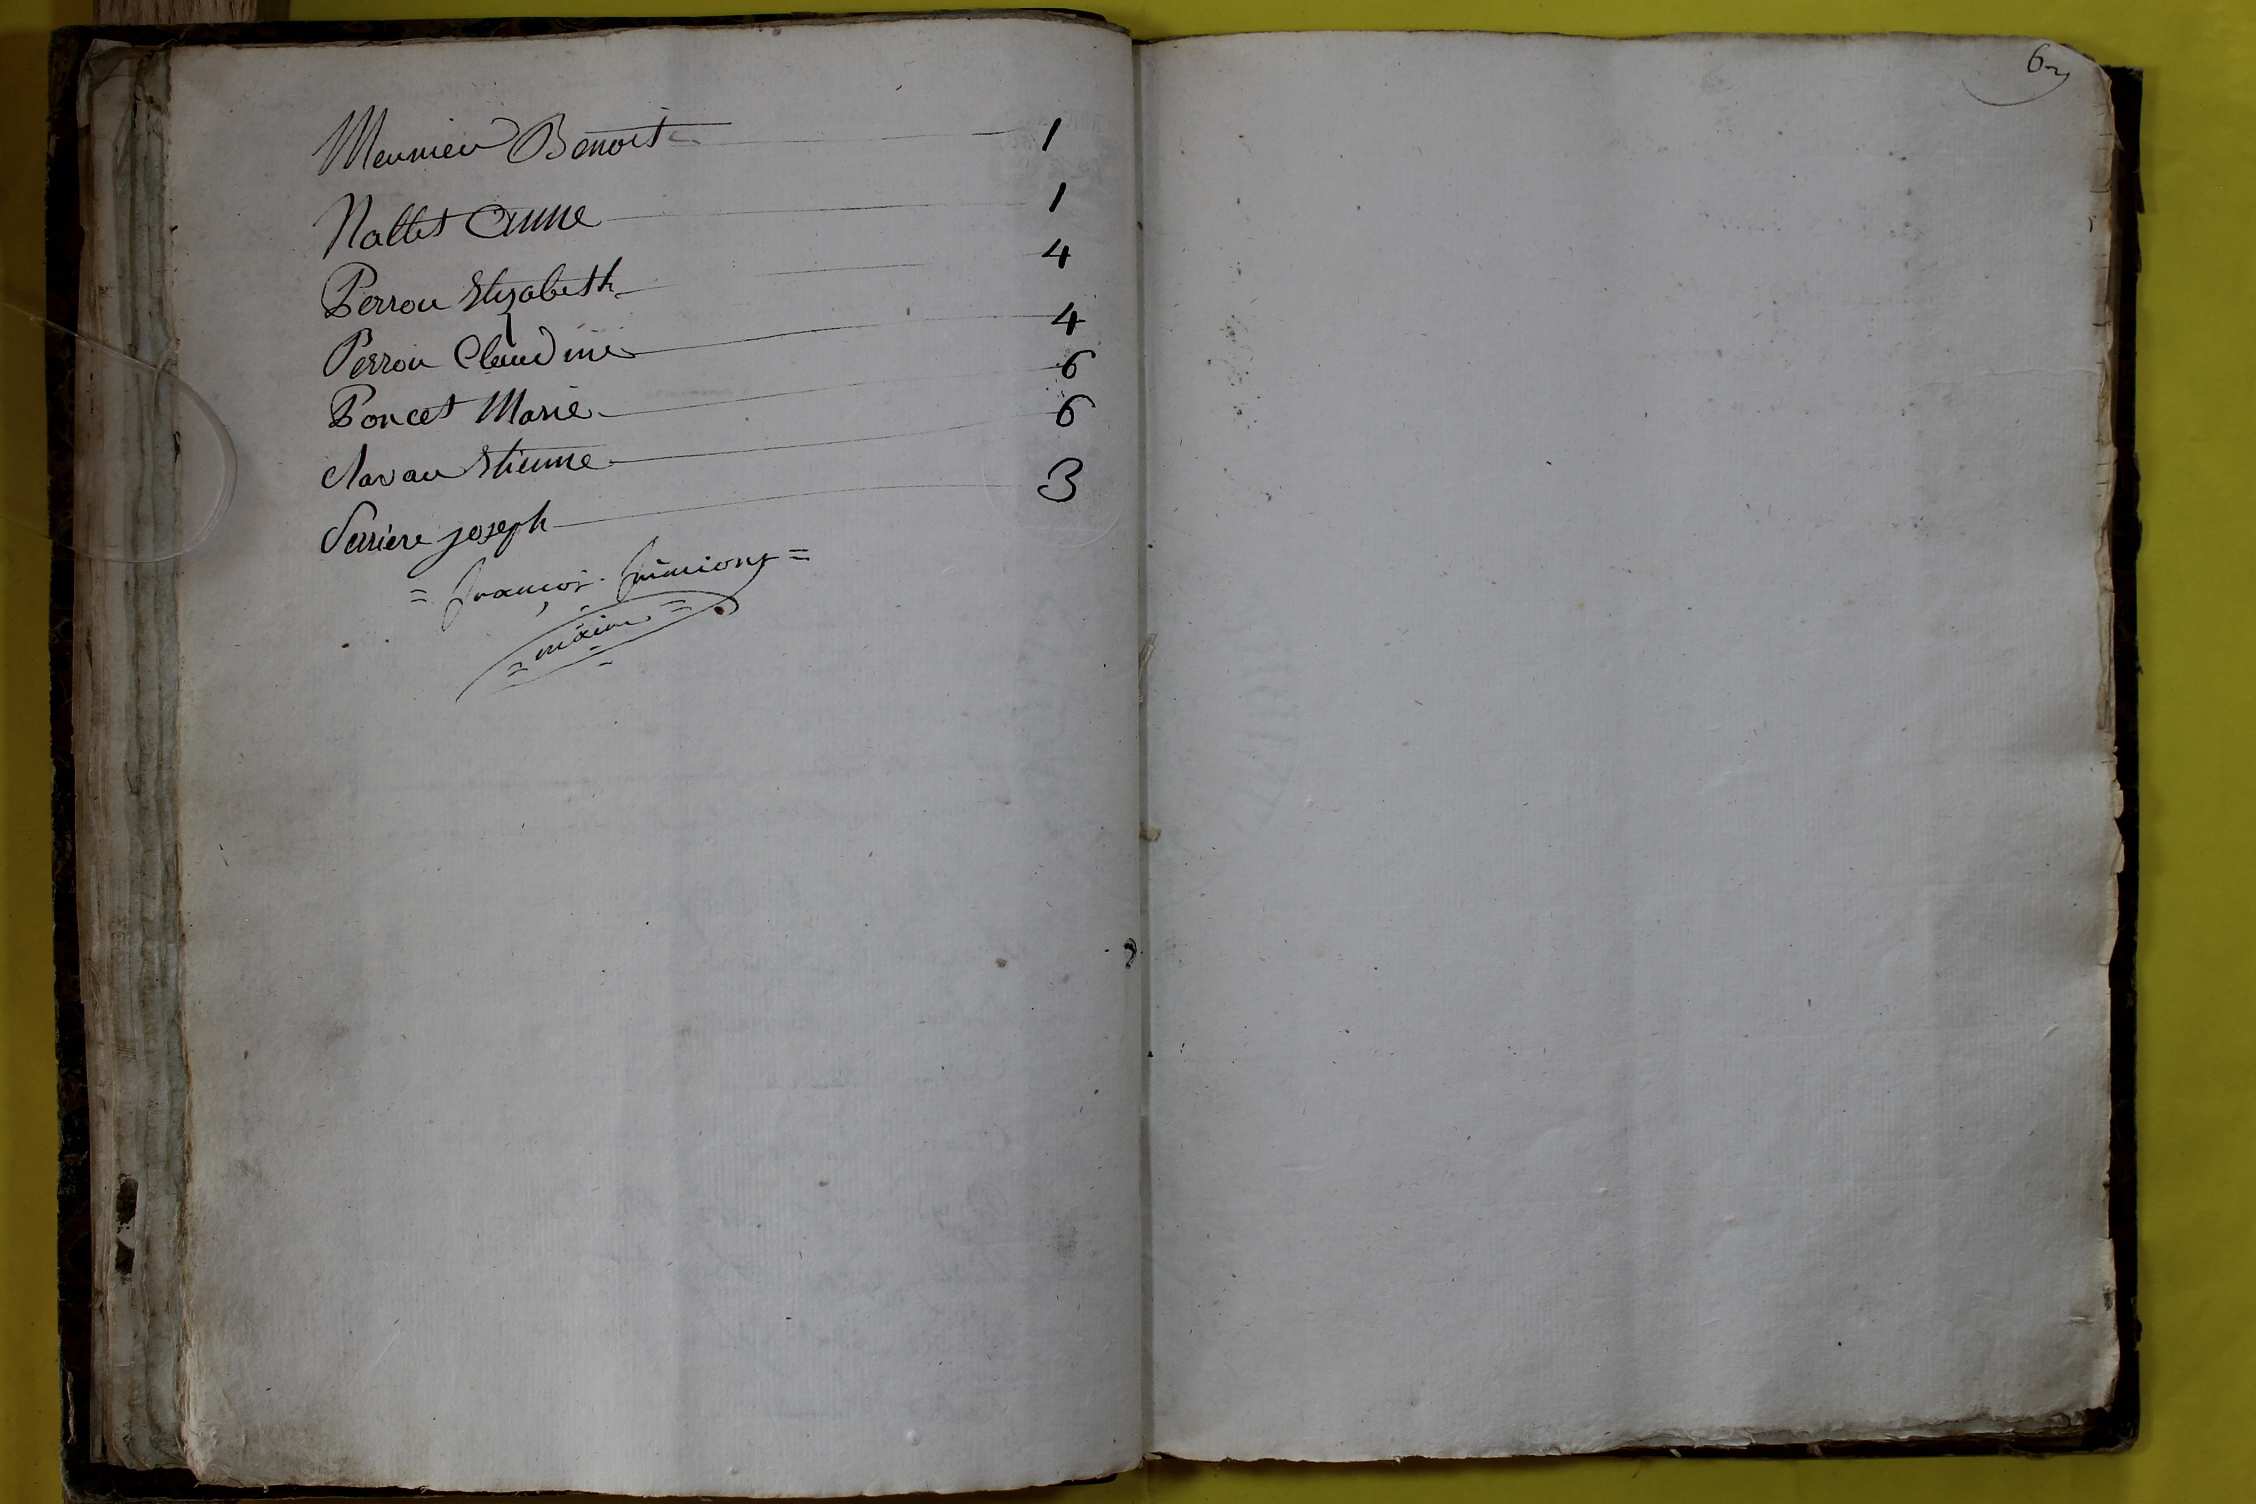 Meunier Benoit 1
Nallet Anne 1
Perron Elizabeth 4
Perron Claudine 4
Poncet Marie 6
Etienne 6
Serriere joseph 3
= françois =
= maire =
6